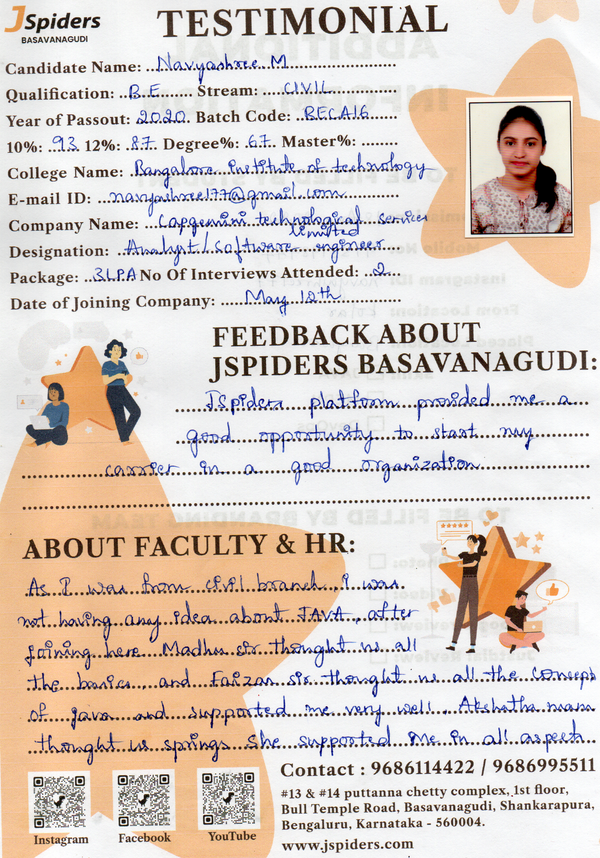 JSpiders
BASAVANAGUDI
TESTIMONIAL
Candidate Name: Navyashree M
Qualification: B.E Stream: CIVIL
Year of Passout: 2020 Batch Code: BECA16
10%: 93 12%: 87 Degree%: 67 Master%:
College Name: Bangalore institute of technology
E-mail ID: navyashree177@gmail.com
Company Name: Capgemini technological services
limited
Designation: Analyst/Software engineer
Package: 3LPA No Of Interviews Attended: 2
Date of Joining Company: May 12th
FEEDBACK ABOUT
JSPIDERS BASAVANAGUDI:
JSpiders platform provided me a
good opportunity to start my
carrier in a good organization
ABOUT FACULTY & HR:
As I was from civil branch, i was
not having any idea about JAVA, after
joining here Madhu sir thought us all
the basics, and Faizan sir thought us all the concept
of java and supported me very well, Akshatha mam
thought us springs. She supported me in all aspects
Contact : 9686114422 / 9686995511
#13 & #14 puttanna chetty complex, 1st floor,
Bull Temple Road, Basavanagudi, Shankarapura,
Bengaluru, Karnataka - 560004.
www.jspiders.com
Instagram Facebook YouTube